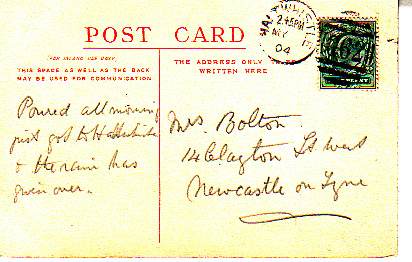 POST CARD
(FOR INLAND USE ONLY)
THIS SPACE AS WELL AS THE BACK
MAY BE USED FOR COMMUNICATION
THE ADDRESS ONLY TO BE
WRITTEN HERE
HALTWHISTLE
2.45PM
MY
04
Poured all morning
just got to
& the rain has
given over.
Mrs. Bolton.
14 Clayton St West
Newcastle on Tyne